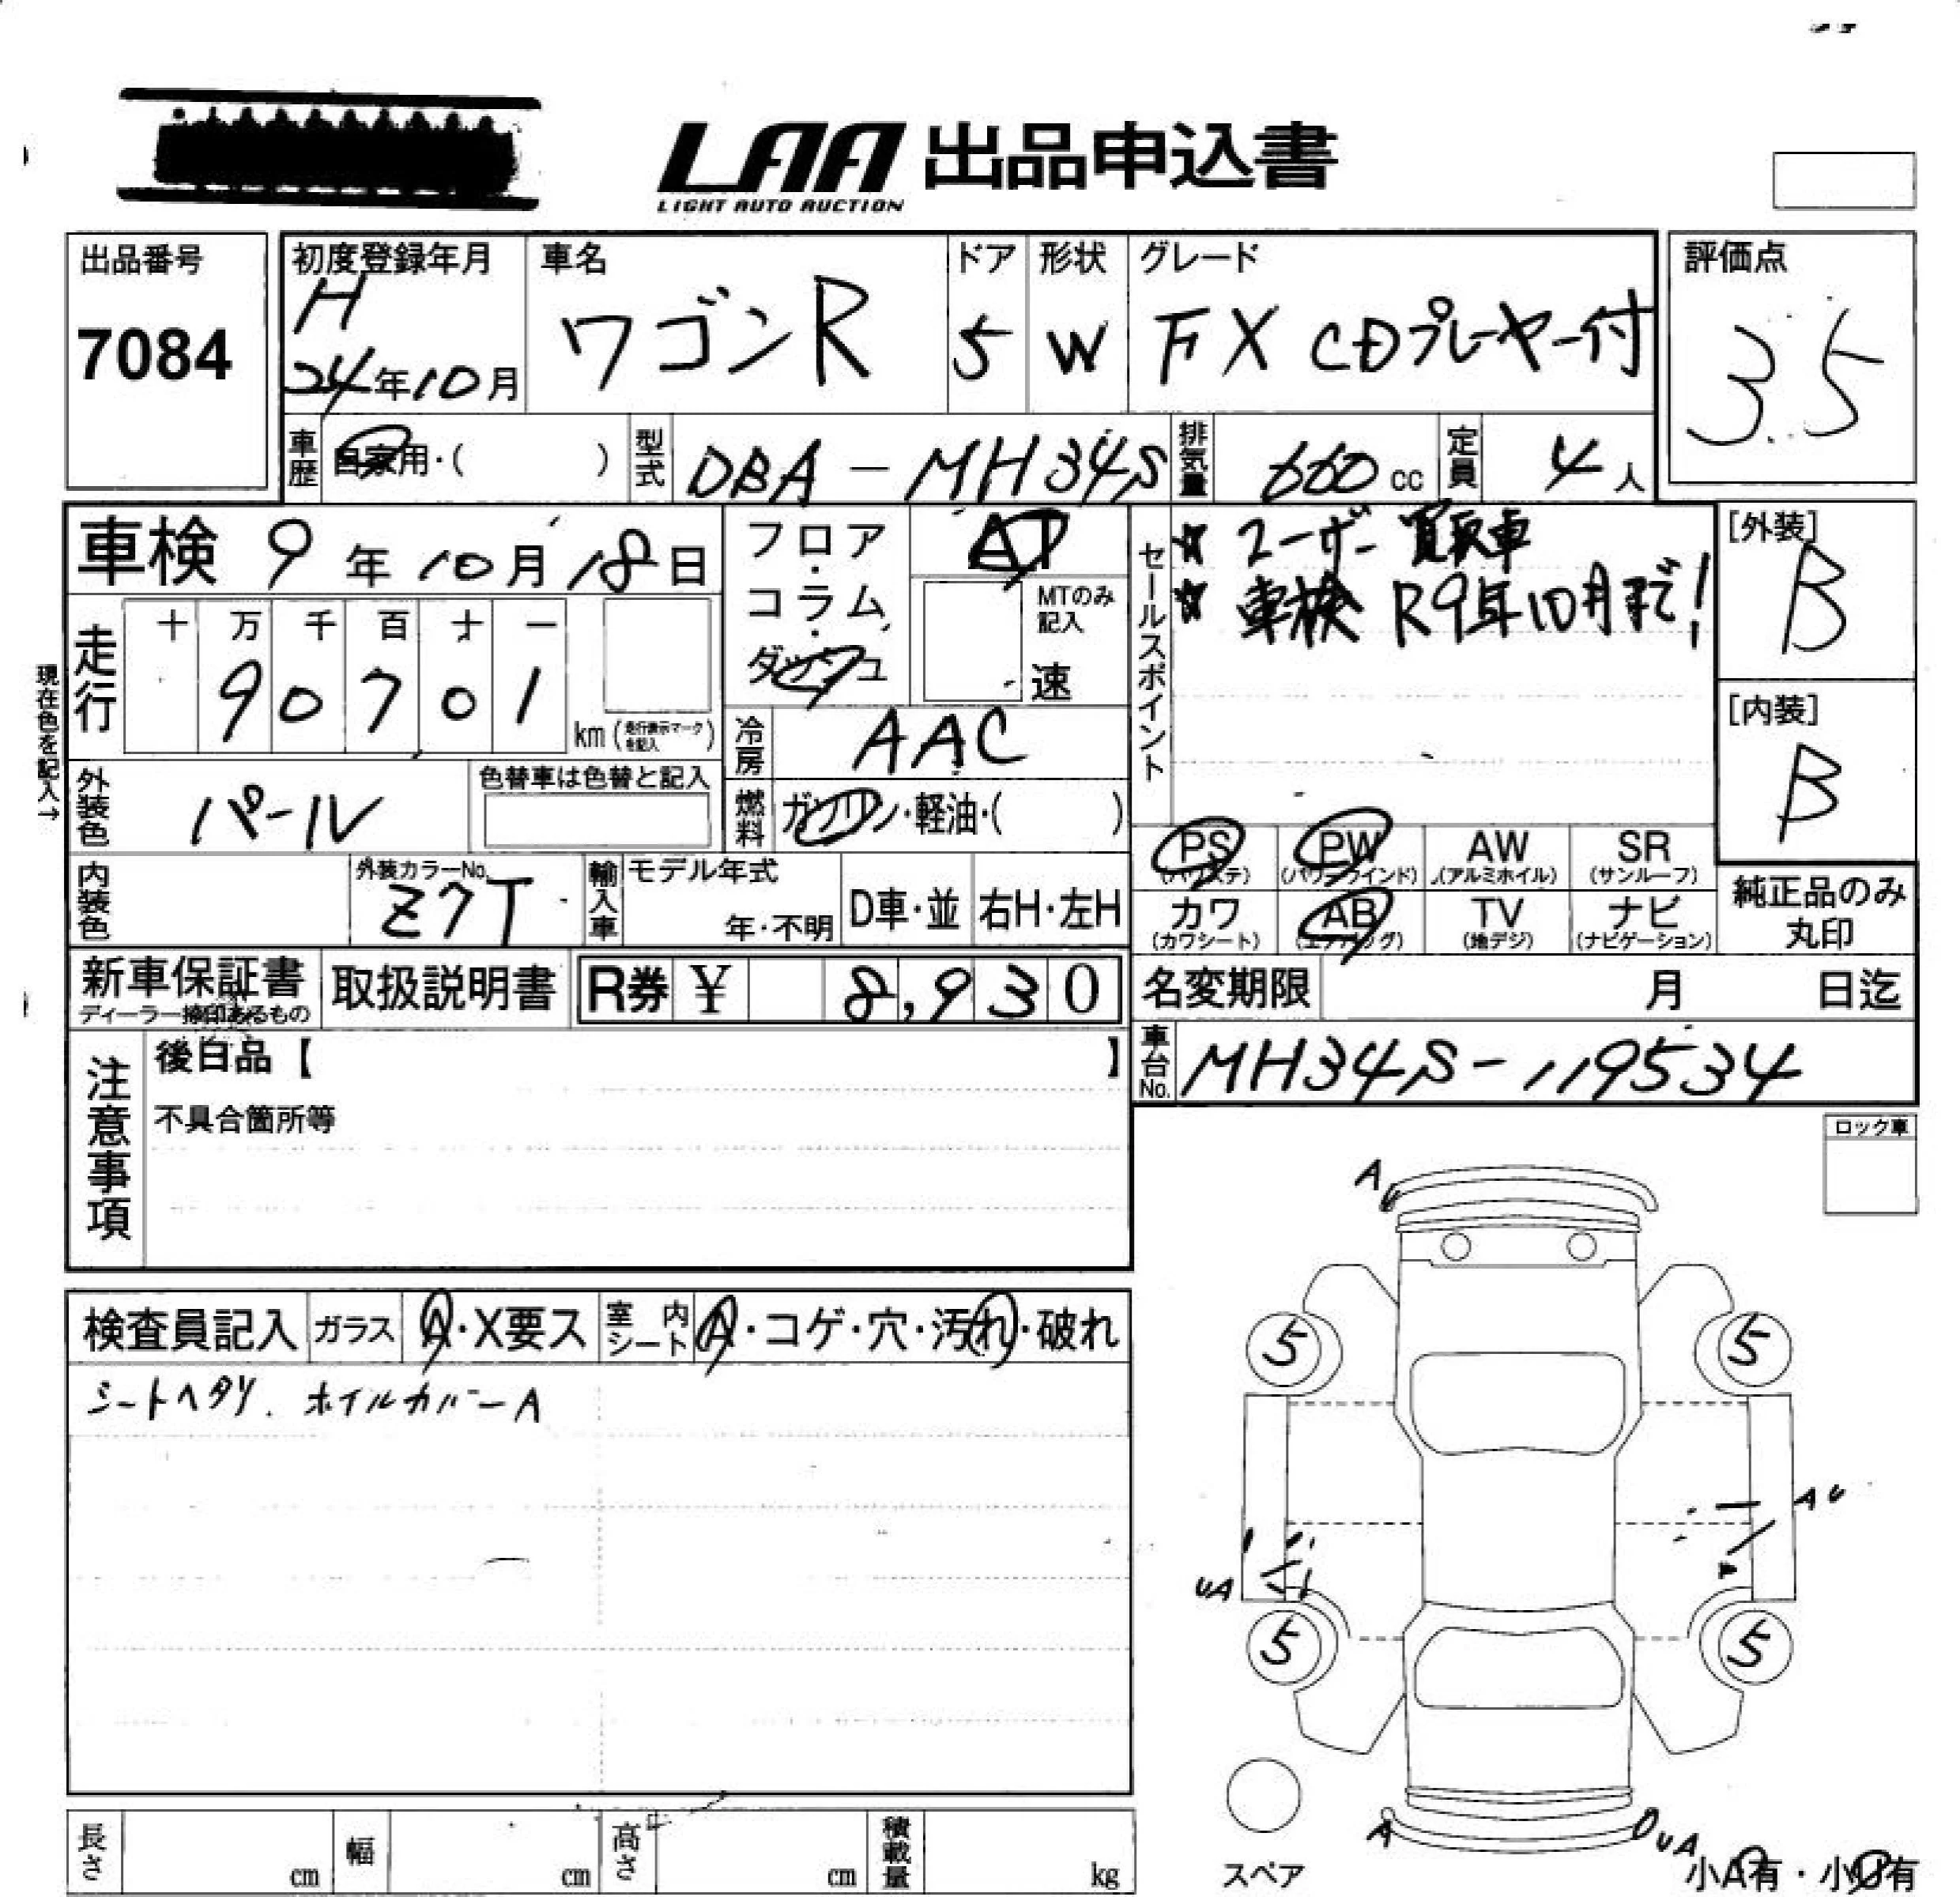 LAA 出品申込書
LIGHT AUTO AUCTION
出品番号
7084
初度登録年月
H
24年10月
車名
ワゴンR
ドア
5
形状
W
グレード
FX CDプレーヤー付
評価点
3.5
車歴 自家用・( )
型式 DBA-MH34S
排気量 660 cc
定員 4人
車検 9年10月18日
フロア・コラム・ダッシュ
AT
MTのみ記入
速
セールスポイント
☆ユーザー買取車
☆車検R9年10月まで!
[外装]
B
[内装]
B
現在色を記入→
走行
十 万 千 百 十 一
9 0 7 0 1
km (走行表示マークを記入)
冷房 AAC
外装色 パール
色替車は色替と記入
燃料 ガソリン・軽油・( )
内装色
外装カラーNo.
Z7T
輸入車
モデル年式
年・不明
D車・並
右H・左H
PS (パワステ)
PW (パワーウインド)
AW (アルミホイル)
SR (サンルーフ)
カワ (カワシート)
AB (エアバッグ)
TV (地デジ)
ナビ (ナビゲーション)
純正品のみ
丸印
新車保証書
ディーラー捺印あるもの
取扱説明書
R券 ¥ 8,930
名変期限 月 日迄
車台No. MH34S-119534
注意事項
後日品【 】
不具合箇所等
ロック車
検査員記入
ガラス A・X要ス
室内シート A・コゲ・穴・汚れ・破れ
シートヘタリ. ホイルカバーA
A U
5
5
A U
U A
5
5
A
U A
スペア
小A有・小U有
長さ cm
幅 cm
高さ cm
積載量 kg